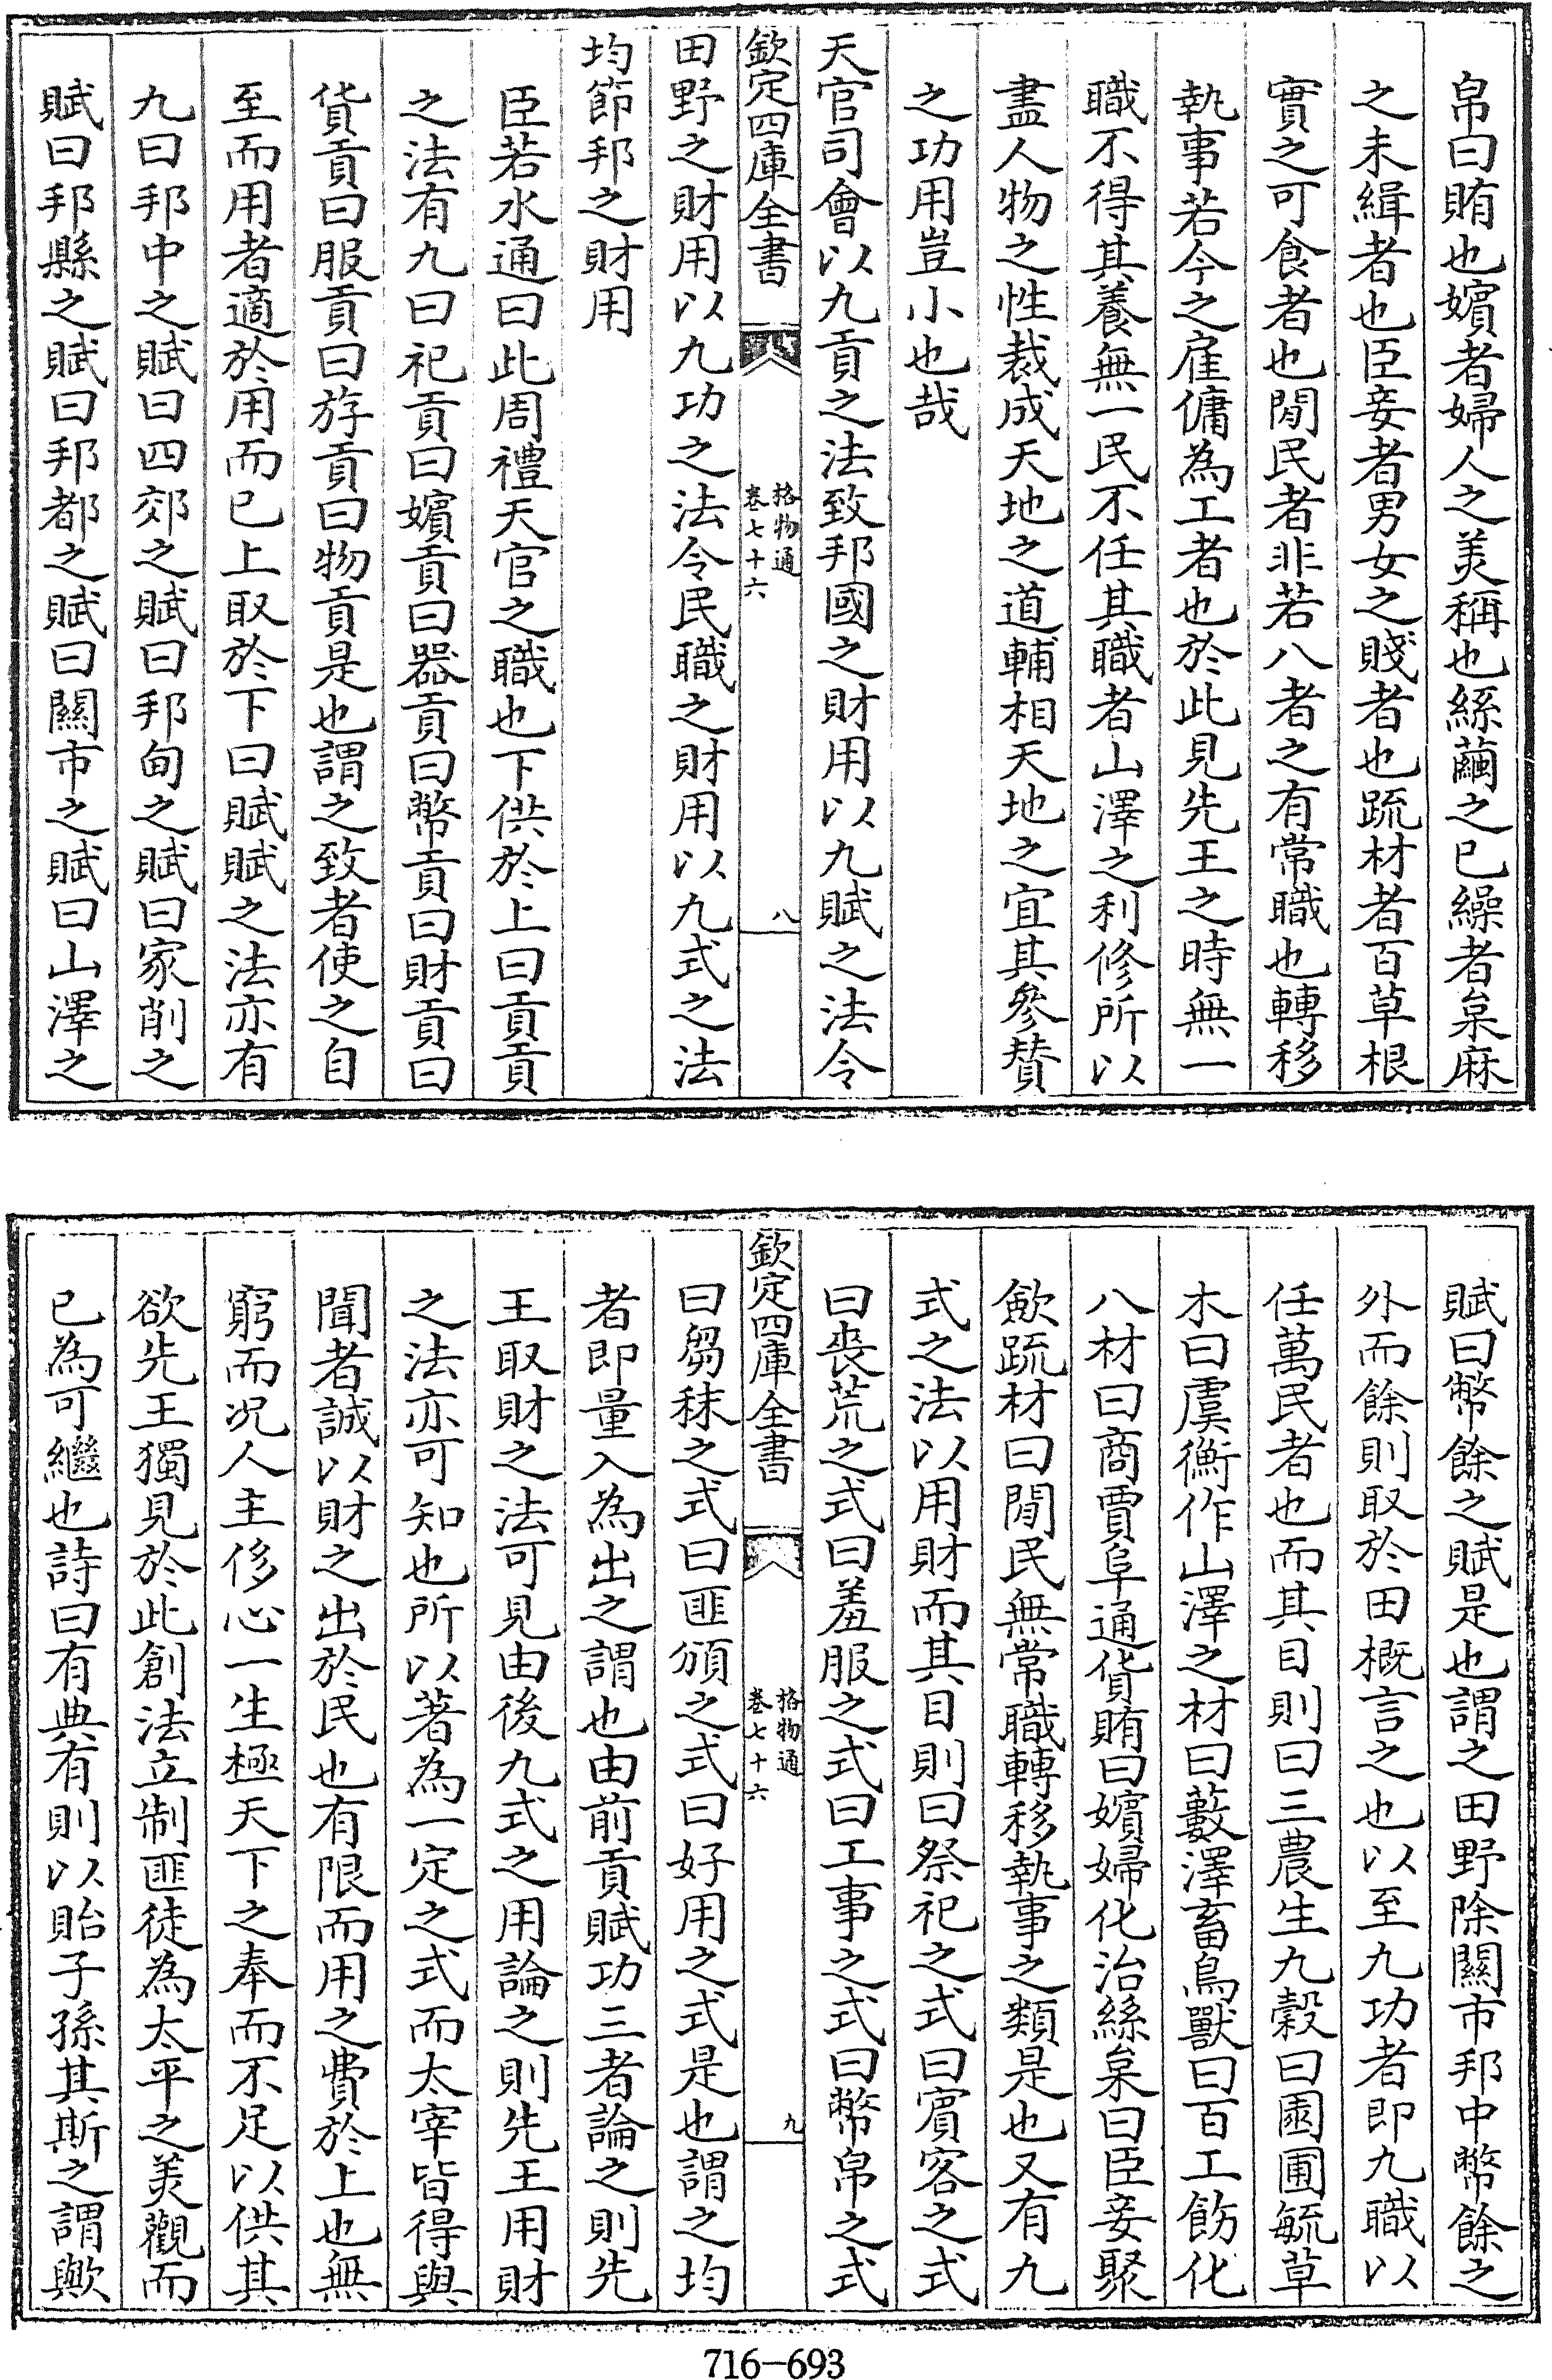 帛曰賄也嬪者婦人之美稱也絲繭之已繰者枲麻
之未緝者也臣妾者男女之賤者也䟽材者百草根
實之可食者也閒民者非若八者之有常職也轉移
執事若今之雇傭為工者也於此見先王之時無一
職不得其養無一民不任其職者山澤之利修所以
盡人物之性裁成天地之道輔相天地之宜其參贊
之功用豈小也哉
天官司會以九貢之法致邦國之財用以九賦之法令
欽定四庫全書
格物通
卷七十六
八
田野之財用以九功之法令民職之財用以九式之法
均節邦之財用
臣若水通曰此周禮天官之職也下供於上曰貢貢
之法有九曰祀貢曰嬪貢曰器貢曰幣貢曰財貢曰
貨貢曰服貢曰斿貢曰物貢是也謂之致者使之自
至而用者適於用而已上取於下曰賦賦之法亦有
九曰邦中之賦曰四郊之賦曰邦甸之賦曰家削之
賦曰邦縣之賦曰邦都之賦曰關市之賦曰山澤之
賦曰幣餘之賦是也謂之田野除關市邦中幣餘之
外而餘則取於田概言之也以至九功者即九職以
任萬民者也而其目則曰三農生九穀曰園圃毓草
木曰虞衡作山澤之材曰藪澤畜鳥獸曰百工飭化
八材曰商賈阜通貨賄曰嬪婦化治絲枲曰臣妾聚
斂䟽材曰閒民無常職轉移執事之類是也又有九
式之法以用財而其目則曰祭祀之式曰賓客之式
曰喪荒之式曰羞服之式曰工事之式曰幣帛之式
欽定四庫全書
格物通
卷七十六
九
曰芻秣之式曰匪頒之式曰好用之式是也謂之均
者即量入為出之謂也由前貢賦功三者論之則先
王取財之法可見由後九式之用論之則先王用財
之法亦可知也所以著為一定之式而太宰皆得與
聞者誠以財之出於民也有限而用之費於上也無
窮而况人主侈心一生極天下之奉而不足以供其
欲先王獨見於此創法立制匪徒為太平之美觀而
已為可繼也詩曰有典有則以貽子孫其斯之謂歟
716-693